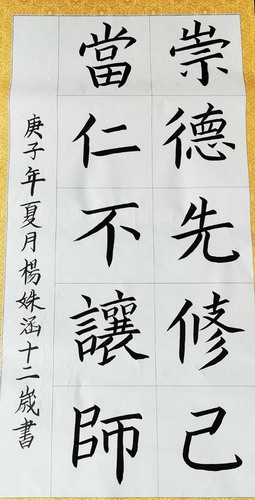 崇德先修己
當仁不讓師
庚子年夏月楊姝涵十二歲書